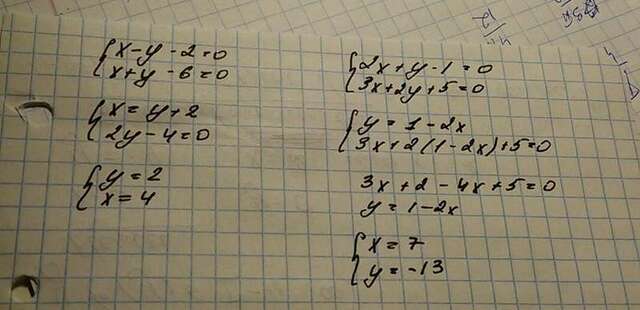 x-y-2=0
x+y-6=0
x=y+2
2y-4=0
y=2
x=4
2x+y-1=0
3x+2y+5=0
y=1-2x
3x+2(1-2x)+5=0
3x+2-4x+5=0
y=1-2x
x=7
y=-13